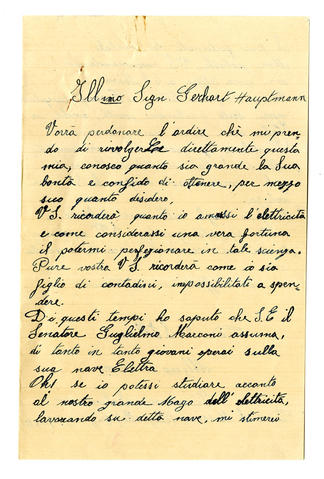 Ill.mo Sign Gerhart Hauptmann
Vorrà perdonare l'ardire chè mi pren-
do di rivolgerLe direttamente questa
mia, conosco quanto sia grande la Sua
bontà e confido di ottenere, per mezzo
suo quanto desidero,
V S. ricorderà quanto io amassi l'elettricità
e come considerassi una vera fortuna
il potermi perfezionare in tale scienza.
Pure vostra V S. ricorderà come io sia
figlio di contadini, impossibilitati a spen-
dere.
Di questi tempi ho saputo che S.E il
Senatore Guglielmo Marconi assuma,
di tanto in tanto giovani operai sulla
sua nave Elettra
Oh! se io potessi studiare accanto
al nostro grande Mago dell'elettricità,
lavorando su detta nave, mi stimerio